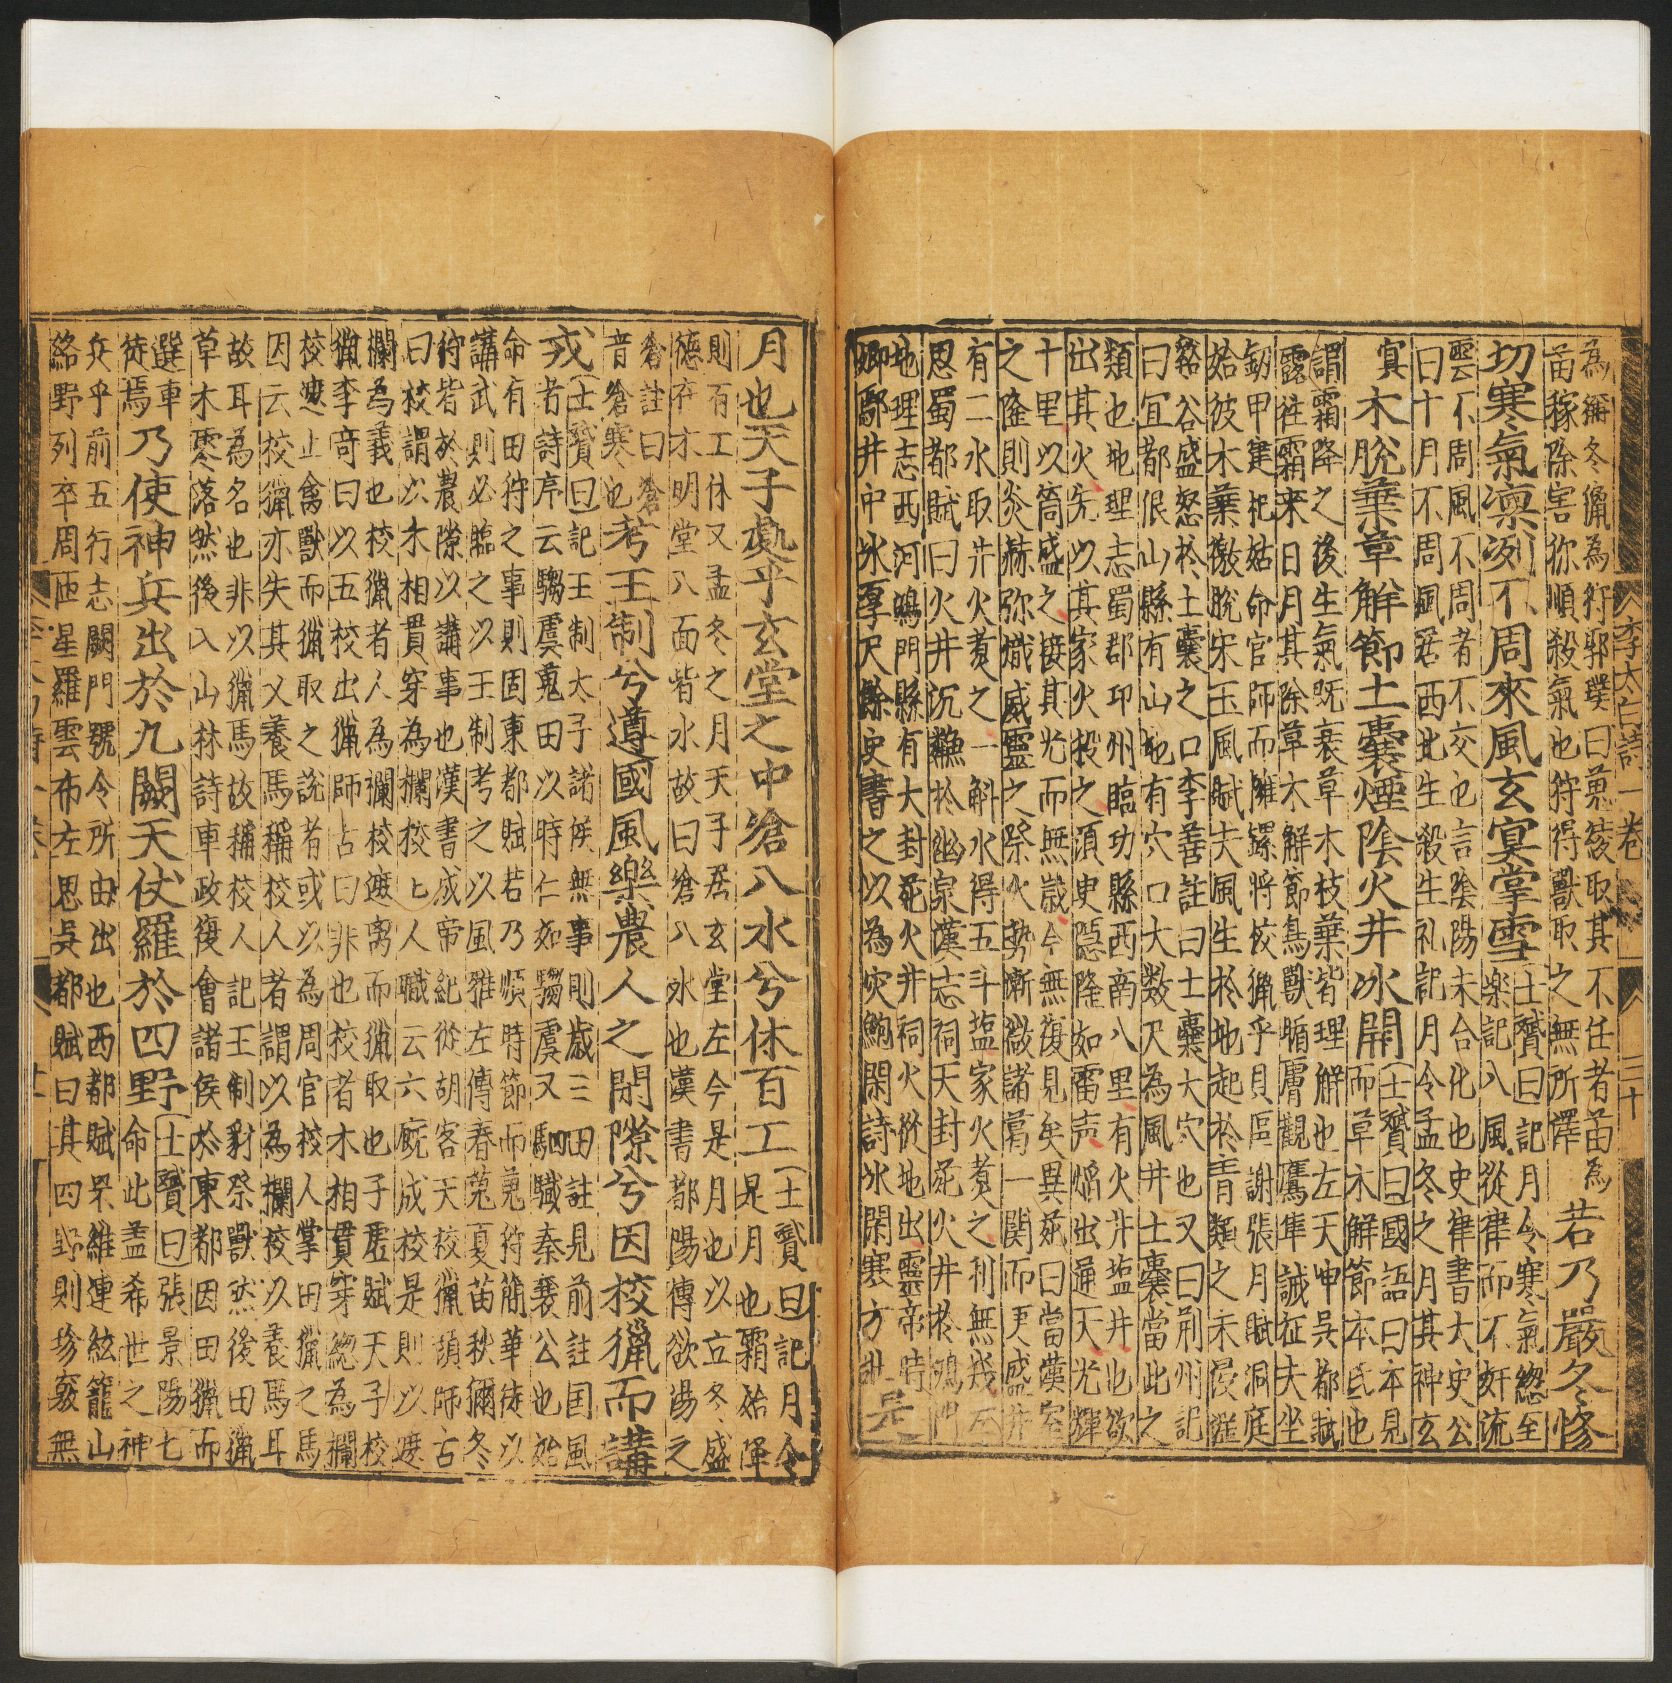 為獮冬獵為狩郭璞曰蒐索取其不任者苗為
苗稼除害狝順殺氣也狩得獸取之無所擇
若乃嚴冬慘
切寒氣凛冽不周來風玄冥掌雪
士贇曰記月令寒氣總至
樂記八風從律而不奸流
雲不周風不周者不交也言陰陽未合化也史律書大史公
曰十月不周風居西北生殺生礼記月令孟冬之月其神玄
冥
木脫葉草解節土囊煙陰火井冰開
士贇曰國語曰本見
而草木解節本氐也
謂霜降之後生氣既衰草木枝葉皆理解也左天冲吳都賦
露往霜来日月其除草木解節鳥獸腯膚觀鷹隼誠征夫坐
劒甲建祀姑命官師而雝鐸將校獵乎具區謝張月賦洞庭
始彼木葉微脫宋玉風賦夫風生於地起於青蘋之末侵淫
谿谷盛怒於土囊之口李善註曰土囊大穴也又曰荆州記
曰冝都佷山縣有山山有穴口大數尺為風井土囊當此之
類也地理志蜀郡卭州臨功縣西南八里有火井塩井也欲
出其火先以其家火投之湏臾隱隆如雷声熖出通天光輝
十里以筒盛之接其光而無歲今無復見矣異苑曰當漢室
之隆則炎赫弥熾威靈之際火勢漸微諸葛一闞而更盛井
有二水取井火煑之一斛水得五斗塩家火煑之利無幾左
思蜀都賦曰火井沉熒於幽泉漢志祠天封苑火井於鴻門
地理志西河鴻門縣有大封苑火井祠火從地出靈帝時
卿鄠井中冰厚尺餘史書之以為灾鮑閑詩冰閉寒方壯
是
月也天子處乎玄堂之中滄八水兮休百工
士贇曰記月令
是月也霜始降
則百工休又孟冬之月天子居玄堂左今是月也以立冬盛
德在水明堂八面皆水故曰滄八水也漢書鄒陽傳欲湯之
滄註曰滄
音滄寒也
考王制兮遵國風樂農人之閑隙兮因校獵而講
戎
士贇曰記王制大子諸侯無事則歲三田註見前註国風
者詩序云騶虞蒐田以時仁如騶虞又駟驖秦襄公也始
命有田狩之事則固東都賦若乃順時節而蒐狩簡華徒以
講武則必臨之以王制考之以風雅左傳春蒐夏苗秋獮冬
狩皆於農隙以講事也漢書成帝紀從胡客天校獵頴師古
曰校謂以木相貫穿為欄校匕人職云六廐成校是則以遮
欄為義也校獵者人為欄校遮禽而獵取也子虛賦天子校
獵李竒曰以五校出獵師古曰非也校者木相貫穿緫為欄
校遮止禽獸而獵取之說者或以為周官校人掌田獵之馬
因云校獵亦失其义養馬稱校人者謂以為欄校以養馬耳
故耳為名也非以獵馬故稱校人記王制豺祭獸然後田獵
草木零落然後入山林詩車攻復會諸侯於東都因田獵而
選車
徒焉
乃使神兵出於九闕天仗羅於四野
士贇曰張景陽七
命此盖希世之神
兵乎前五行志闕門號令所由出也西都賦罘維連絃籠山
絡野列卒周匝星羅雲布左思吳都賦曰其四野則珍䂕無
李太白詩一卷
三十